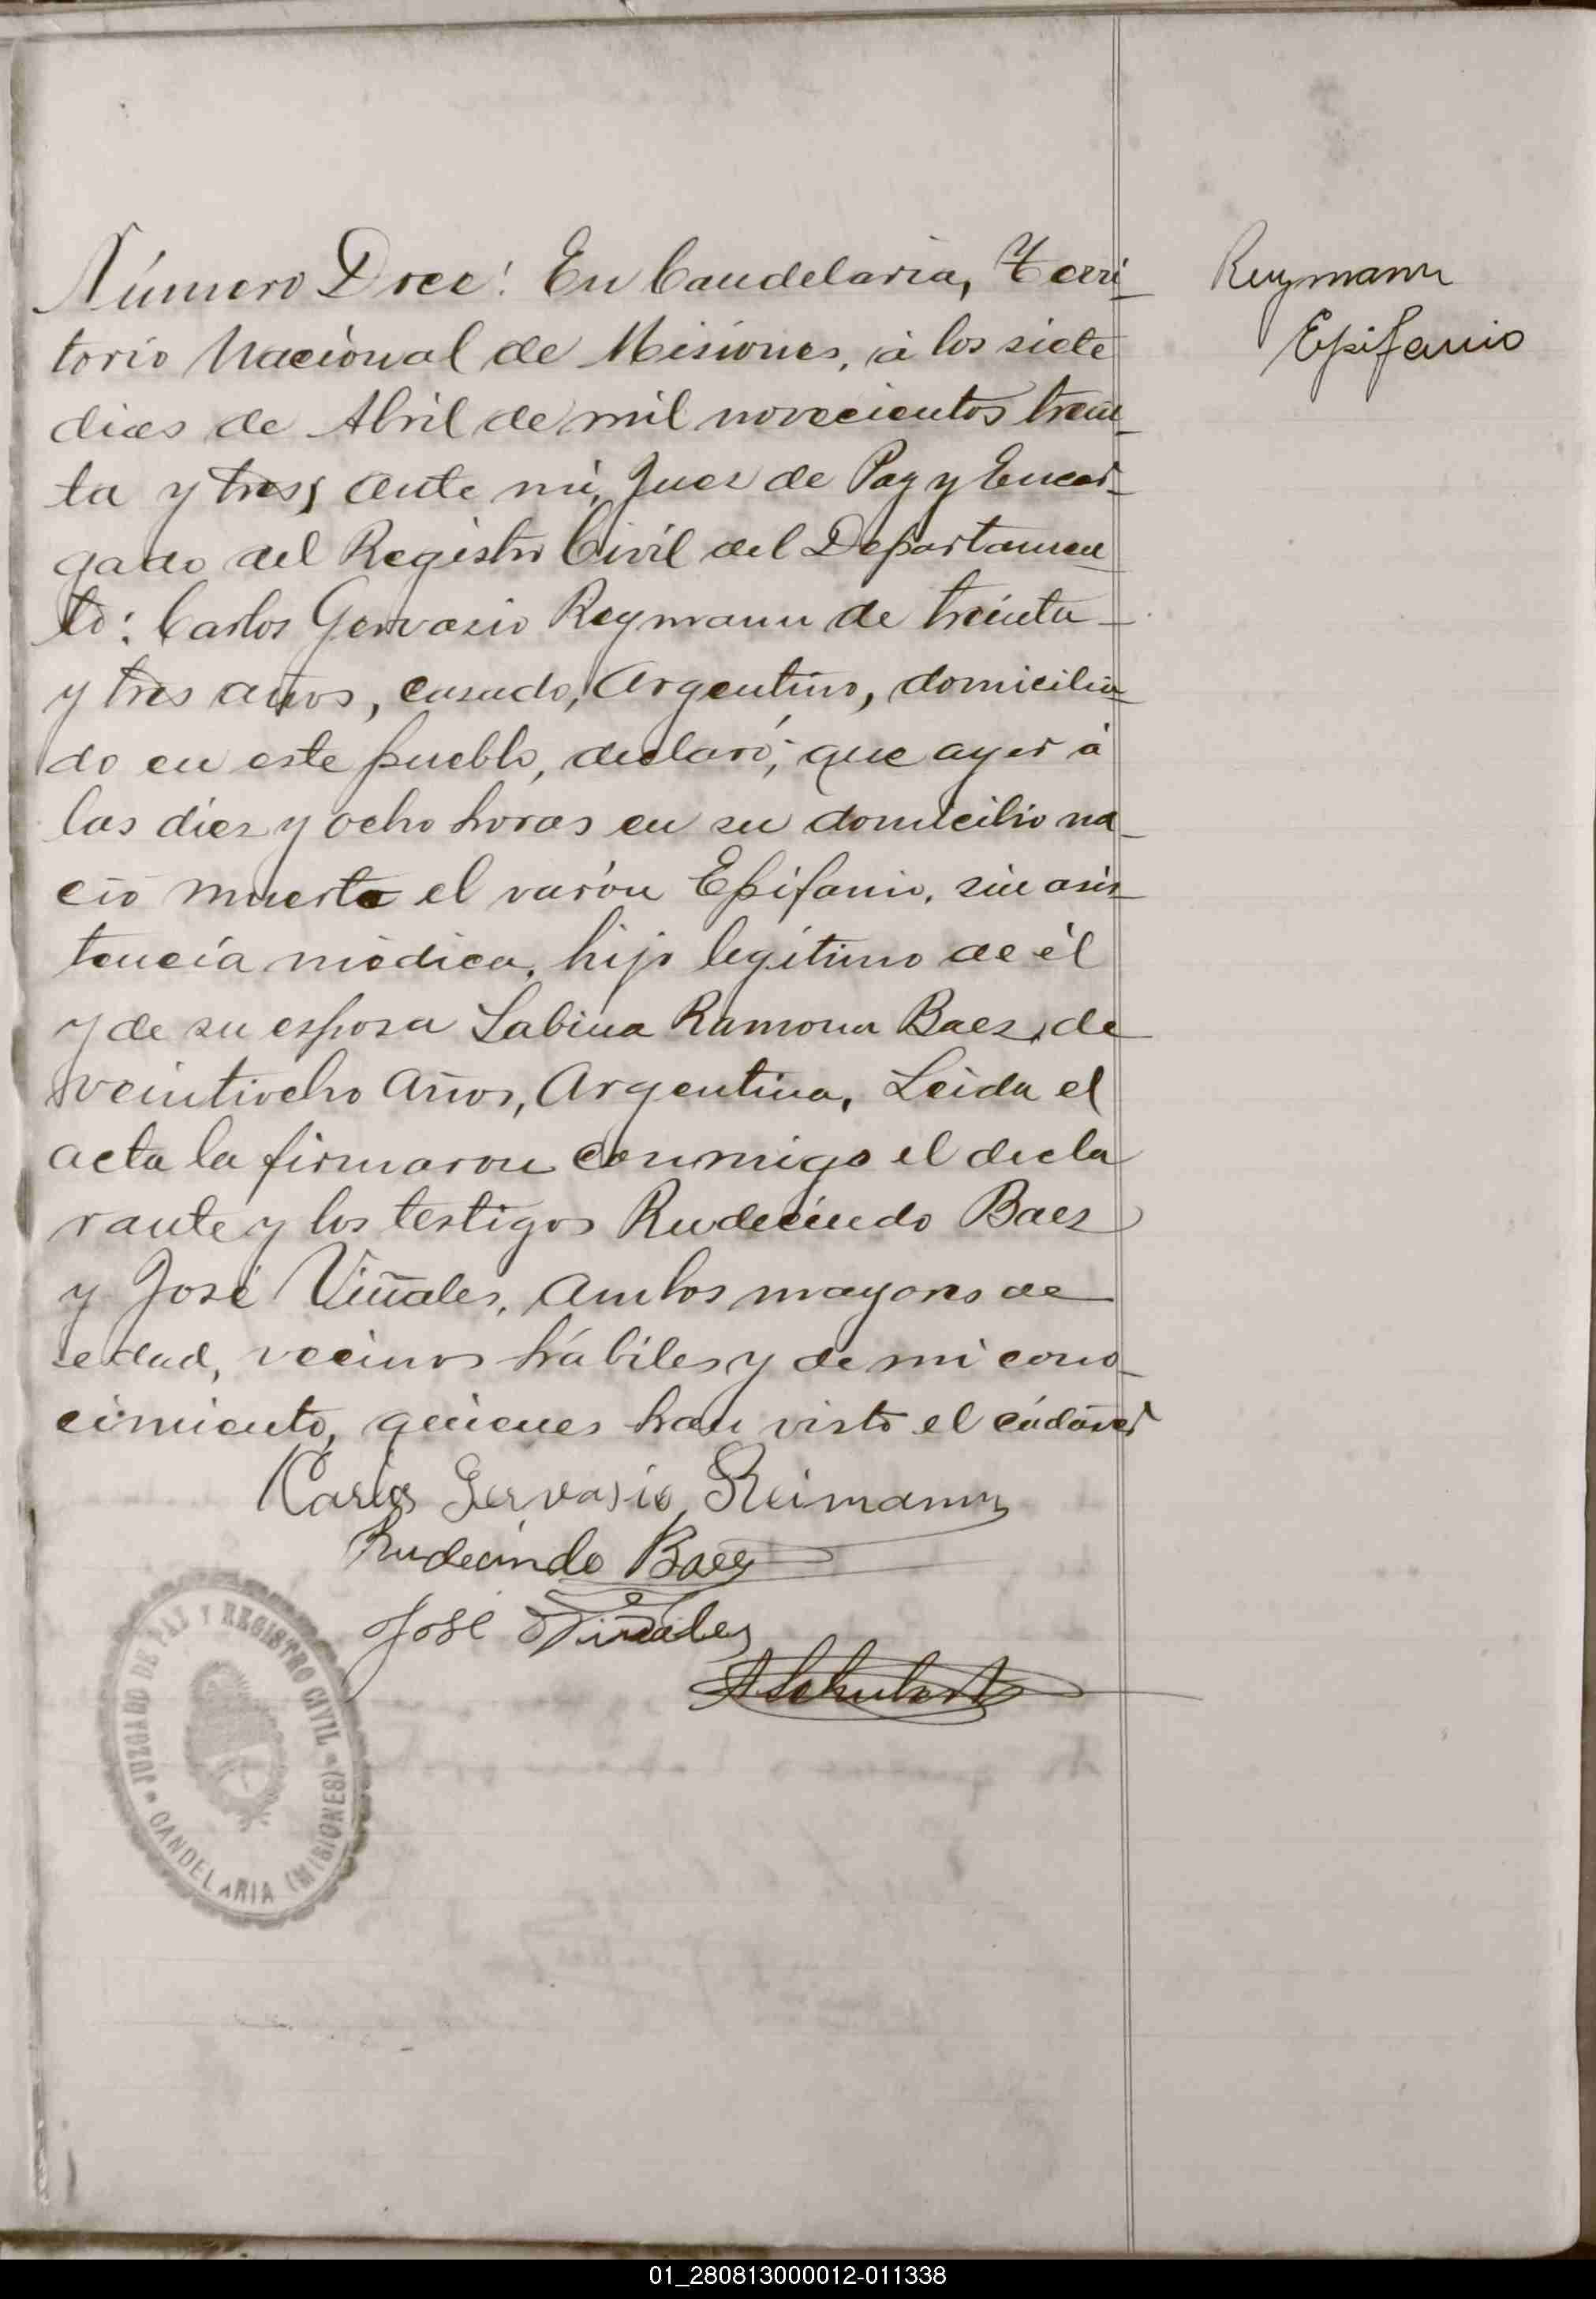 Número Doce: En Candelaria, Terri-
torio Nacional de Misiones, á los siete
dias de Abril de mil novecientos trein-
ta y tres, ante mi, Juez de Paz y Encar-
gado del Registro Civil del Departamen-
to: Carlos Gervasio Reymann de treinta
y tres años, casado, Argentino, domicilia-
do en este pueblo, declaró; que ayer á
las diez y ocho horas en su domicilio na-
ció muerto el varón Epifanio, sin asis-
tencia médica, hijo legítimo de él
y de su esposa Sabina Ramona Baez, de
veintiocho años, Argentina. Leida el
acta la firmaron conmigo el decla
rante y los testigos Rudecindo Baez
y José Viñales, ambos mayores de
edad, vecinos hábiles y de mi cono-
cimiento, quienes han visto el cádáver
Reymann
Epifanio
Carlos Gervasio Reimann
Rudecindo Baez
José Viñales
ASchubert
JUZGADO DE PAZ Y REGISTRO CIVIL
CANDELARIA (MISIONES)
01_280813000012-011338